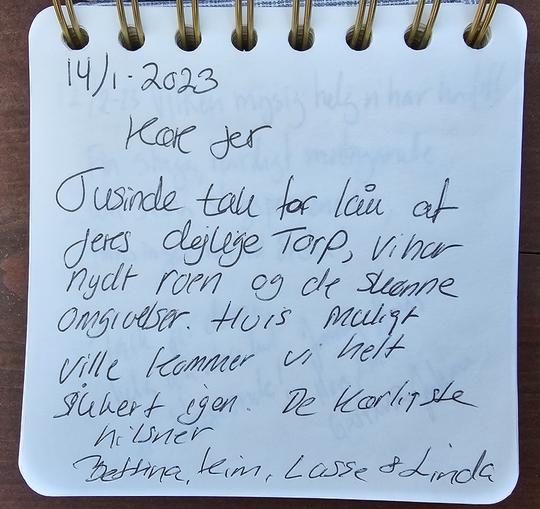 14/1-2023
Kære jer
Tusinde tak for lån af
jeres dejlige Torp, vi har
nydt roen og de skønne
omgivelser. Hvis muligt
ville kommer vi helt
sikkert igen. De Kærligste
hilsner
Bettina, Kim, Lasse & Linda